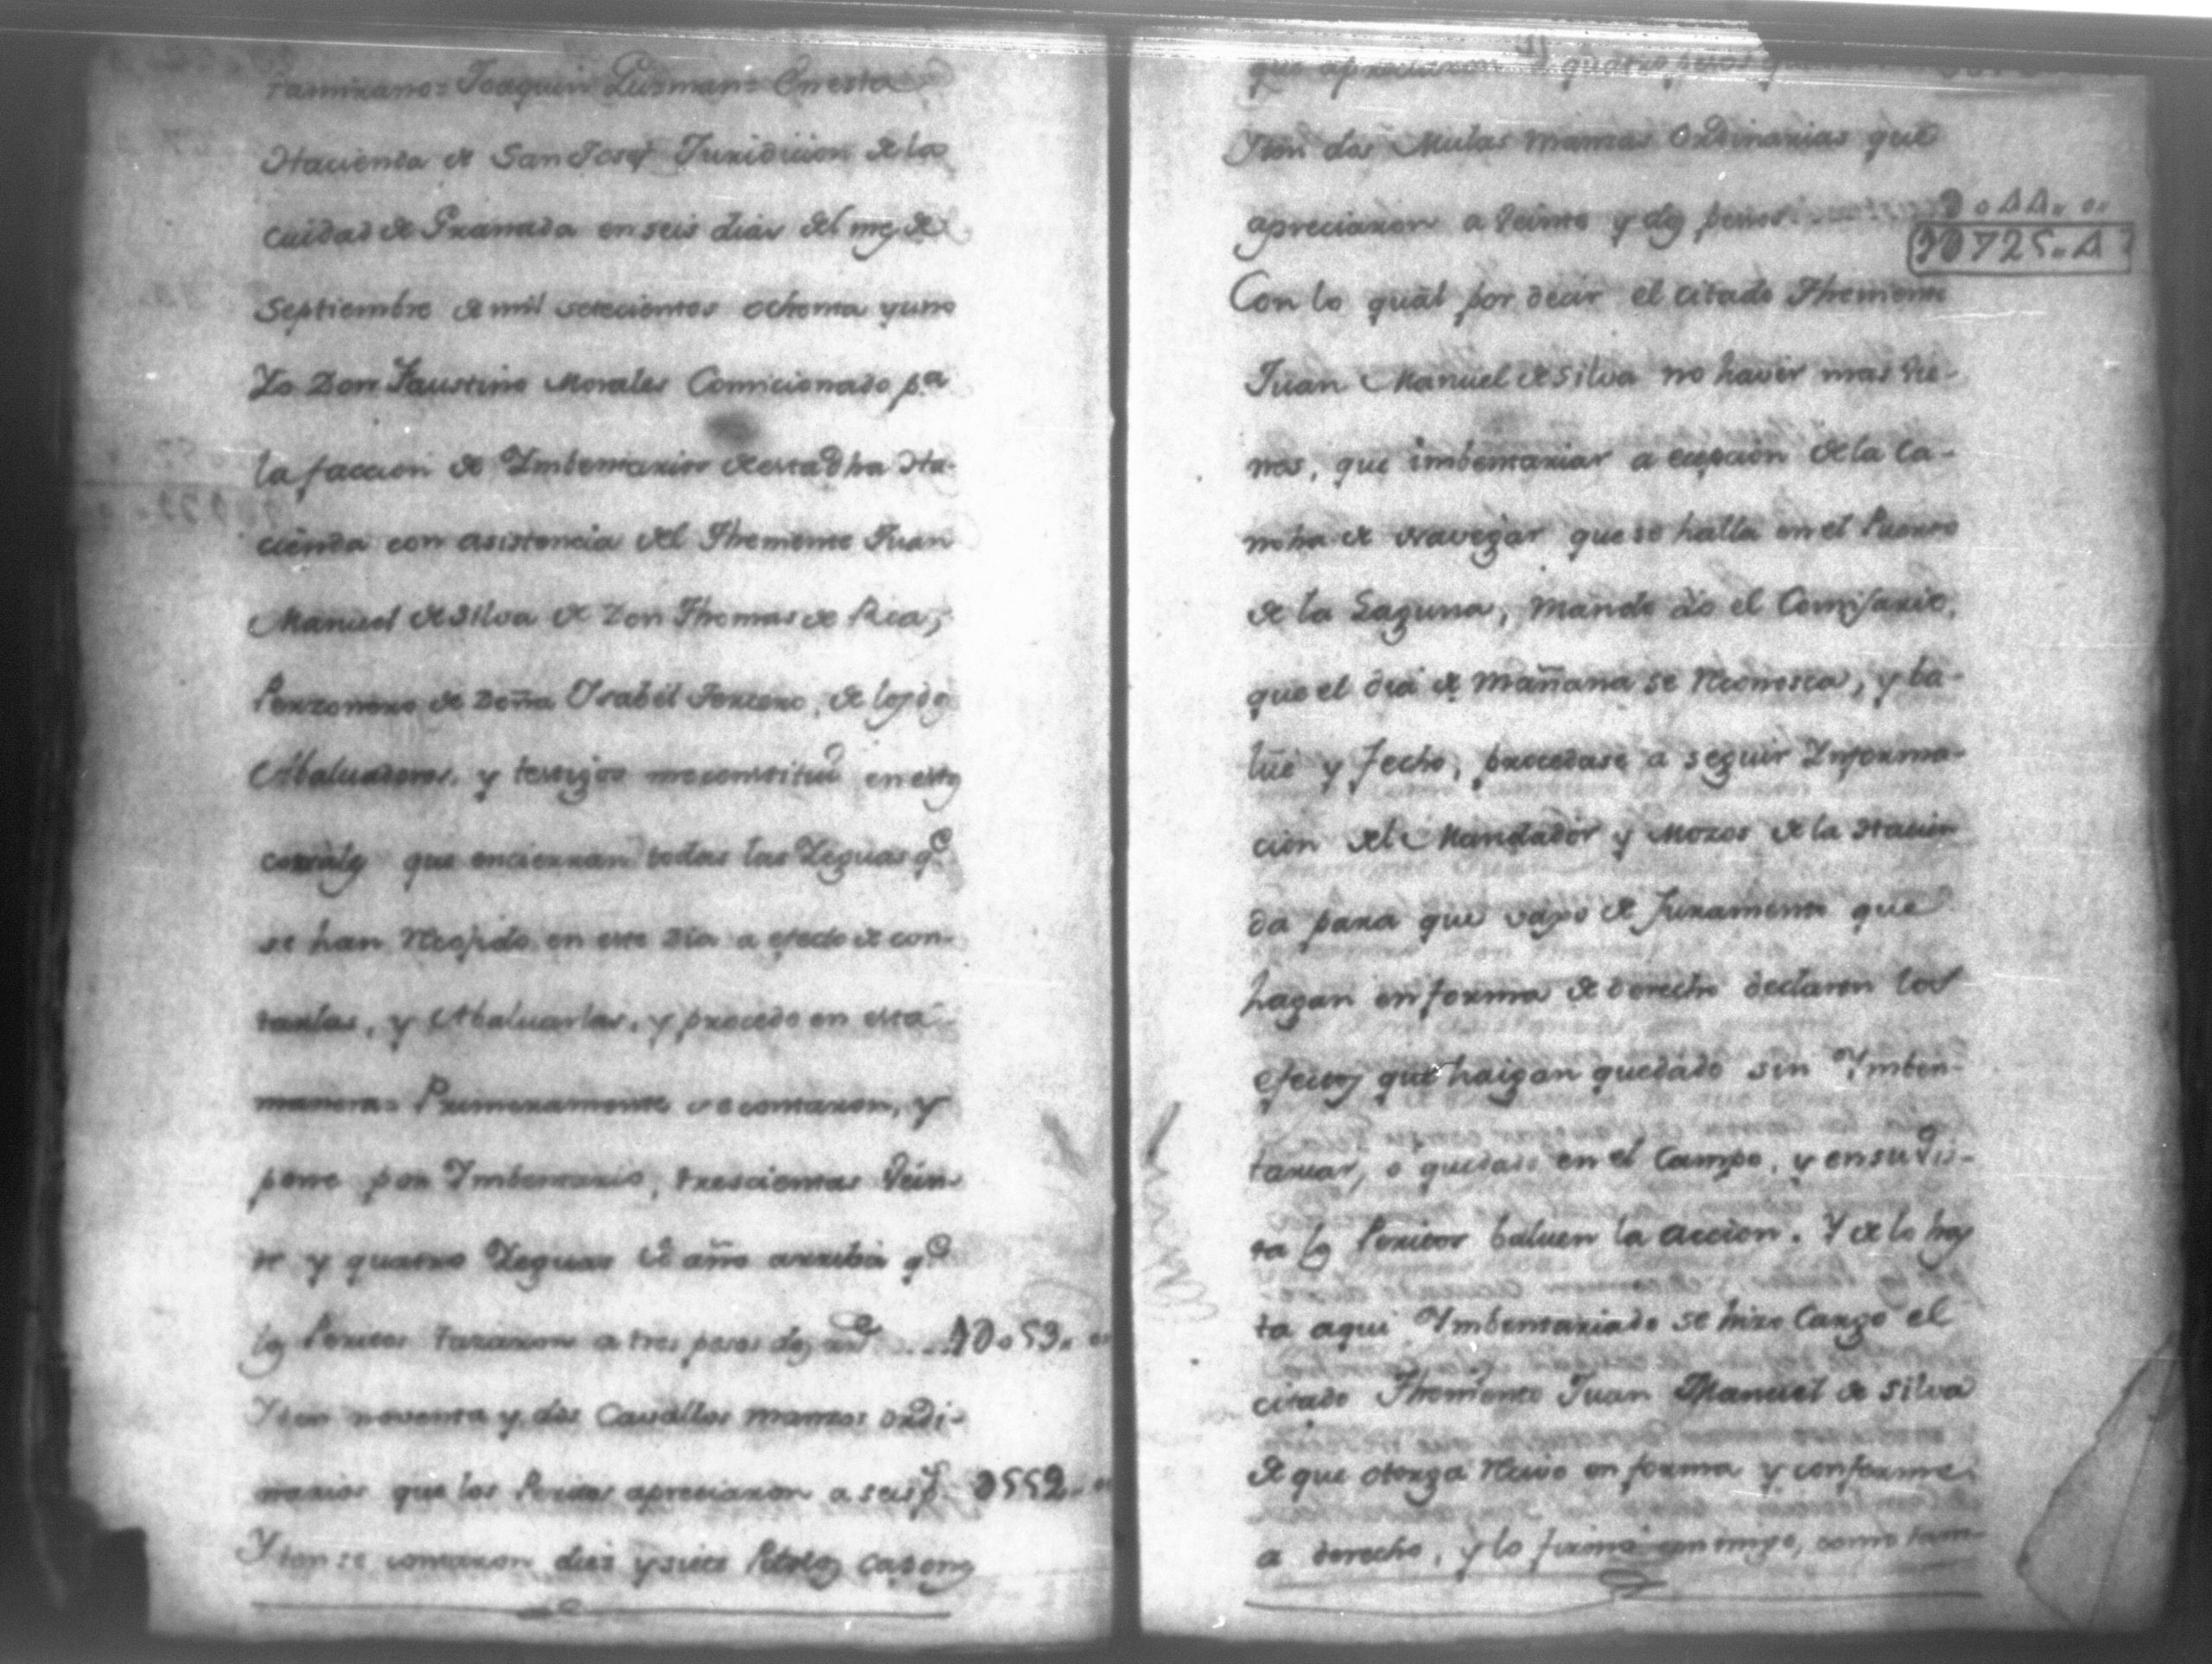 Joaquin Guzman= En esta
Hacienda de San Josef Juridicion de la
Cuidad de Granada en seis dias del mes de
Septiembre de mil setecientos ochenta y uno
Yo Don Faustino Morales Comicionado pa
la faccion de Imbentarios de esta dha Ha-
cienda con asistencia del Theniente Juan
Manuel de Silva de Don Thomas de Rea,
de Doña Isabel, de los dos
Abaluadores, y testigos me constitui en estos
corrales que encierran todas las Yeguas qe
se han Recojido en este Dia a efecto de con-
tarlas, y Abaluarlas, y procedo en esta
manera= Primeramente se contaron, y
pone por Imbentario, trescientas Vein-
te y quatro Yeguas de año arriba qe
los Peritos tazaron a tres pesos dos rrs ....1053.
Iten noventa y dos Cavallos mansos ordi-
narios que los Peritos apreciaron a seis ps. 0552..
Iten se contaron diez y siete Potros capones
que apreciaron a quatro pesos
Iten dos Mulas mansas Ordinarias que
apreciaron a Veinte y dos pesos ..... 0044...
10725.4
Con lo qual por decir el citado Theniente
Juan Manuel de Silva no haver mas Vie-
nes, que imbentariar a ecepcion de la Ca-
noha de Navegar que se halla en el Puerto
de la Laguna, Mando Yo el Comisario,
que el dia de Mañana se Reconosca, y ba-
lue y fecho, procedase a seguir Informa-
cion del Mandador y Mozos de la Hacien-
da para que vajo de Juramento que
hagan en forma de derecho declaren los
efectos que haigan quedado sin Imben-
tariar, o quedado en el Campo, y en su Vis-
ta los Peritos baluen la accion. Y de lo has
ta aqui Imbentariado se hizo Cargo el
citado Theniente Juan Manuel de Silva
de que otorga Recivo en forma y conforme
a derecho, y lo firmó conmigo, como tam-